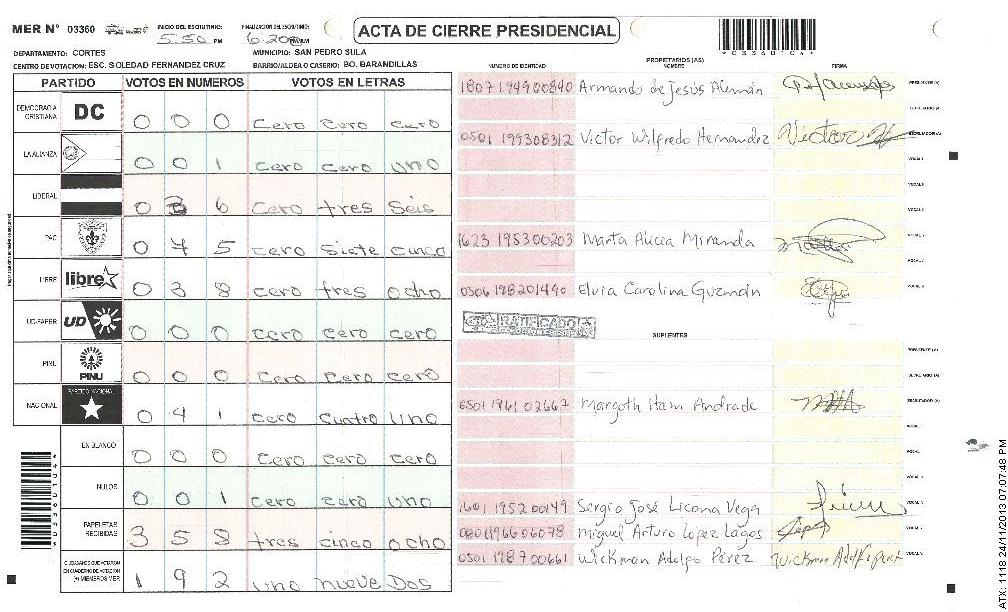 MER N° 03360
INICIO DEL ESCRUTINIO: 5:50 PM
FINALIZACION DEL ESCRUTINIO: 6:20 PM
ACTA DE CIERRE PRESIDENCIAL
DEPARTAMENTO: CORTES
MUNICIPIO: SAN PEDRO SULA
CENTRO DE VOTACION: ESC. SOLEDAD FERNANDEZ CRUZ
BARRIO/ALDEA O CASERIO: BO. BARANDILLAS
PARTIDO VOTOS EN NUMEROS VOTOS EN LETRAS
DEMOCRACIA CRISTIANA DC 0 0 0 cero cero cero
LA ALIANZA 0 0 1 cero cero uno
LIBERAL 0 3 6 cero tres seis
PAC 0 7 5 cero siete cinco
LIBRE libre 0 3 8 cero tres ocho
UD-FAPER UD 0 0 0 cero cero cero
PINU PINU 0 0 0 cero cero cero
NACIONAL PARTIDO NACIONAL 0 4 1 cero cuatro uno
EN BLANCO 0 0 0 cero cero cero
NULOS 0 0 1 cero cero uno
PAPELETAS RECIBIDAS 3 5 8 tres cinco ocho
CIUDADANOS QUE VOTARON EN CUADERNO DE VOTACION (+) MIEMBROS MER 1 9 2 uno nueve Dos
PROPIETARIOS (AS)
NUMERO DE IDENTIDAD NOMBRE FIRMA
1807 194900840 Armando de Jesús Alemán PRESIDENTE (A)
SECRETARIO (A)
0501 199308312 Victor Wilfredo Hernandez Victor ESCRUTADOR (A)
VOCAL
1623 195300203 Marta Miranda
0506 198201490 Elvia Carolina Guzmán
RATIFICADO
SUPLENTES
PRESIDENTE (A)
SECRETARIO (A)
0501 1961 02662 Margoth Ham Andrade ESCRUTADOR (A)
VOCAL
1601 1952 00149 Sergio José Licona Vega
0801 1966 06078 Miguel Arturo Lopez Lagos
0501 198700661 Wickman Adolfo Pérez
*03360104*
ATX: 1118 24/11/2013 07:07:48 PM